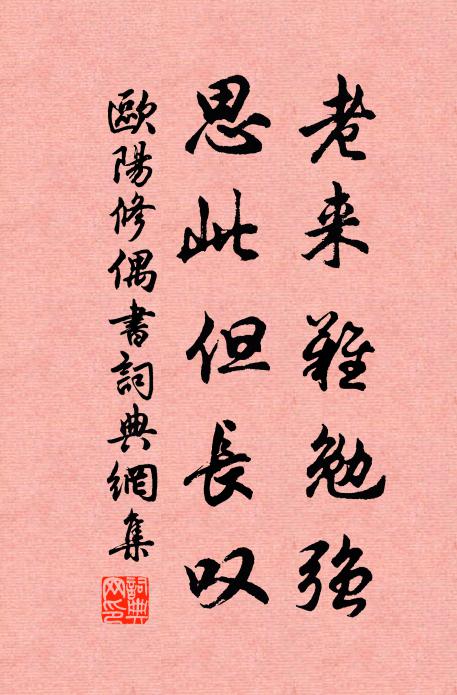 老来難勉強
思此但長叹
歐陽修偶書詞典網集
詞典网印